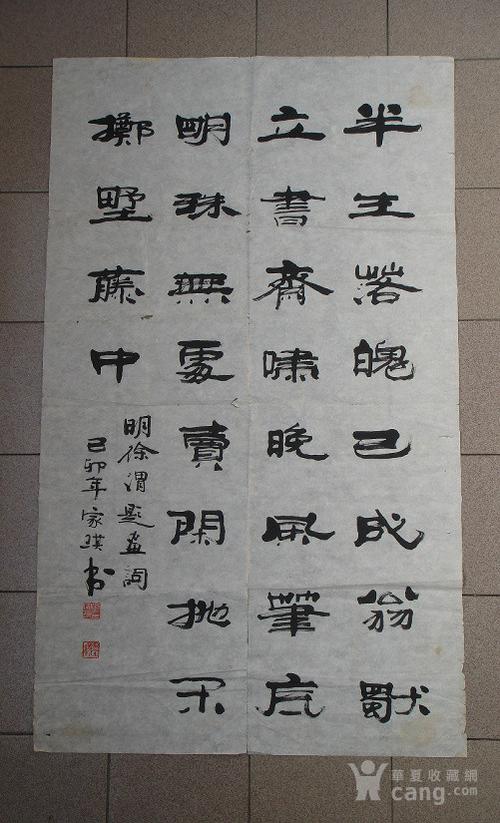 半生落魄已成翁獨
立書齋嘯晚風筆底
明珠無處賣閑拋閑
擲野藤中
明徐渭題画詞
己卯年家琪书
華夏收藏網
cang.com